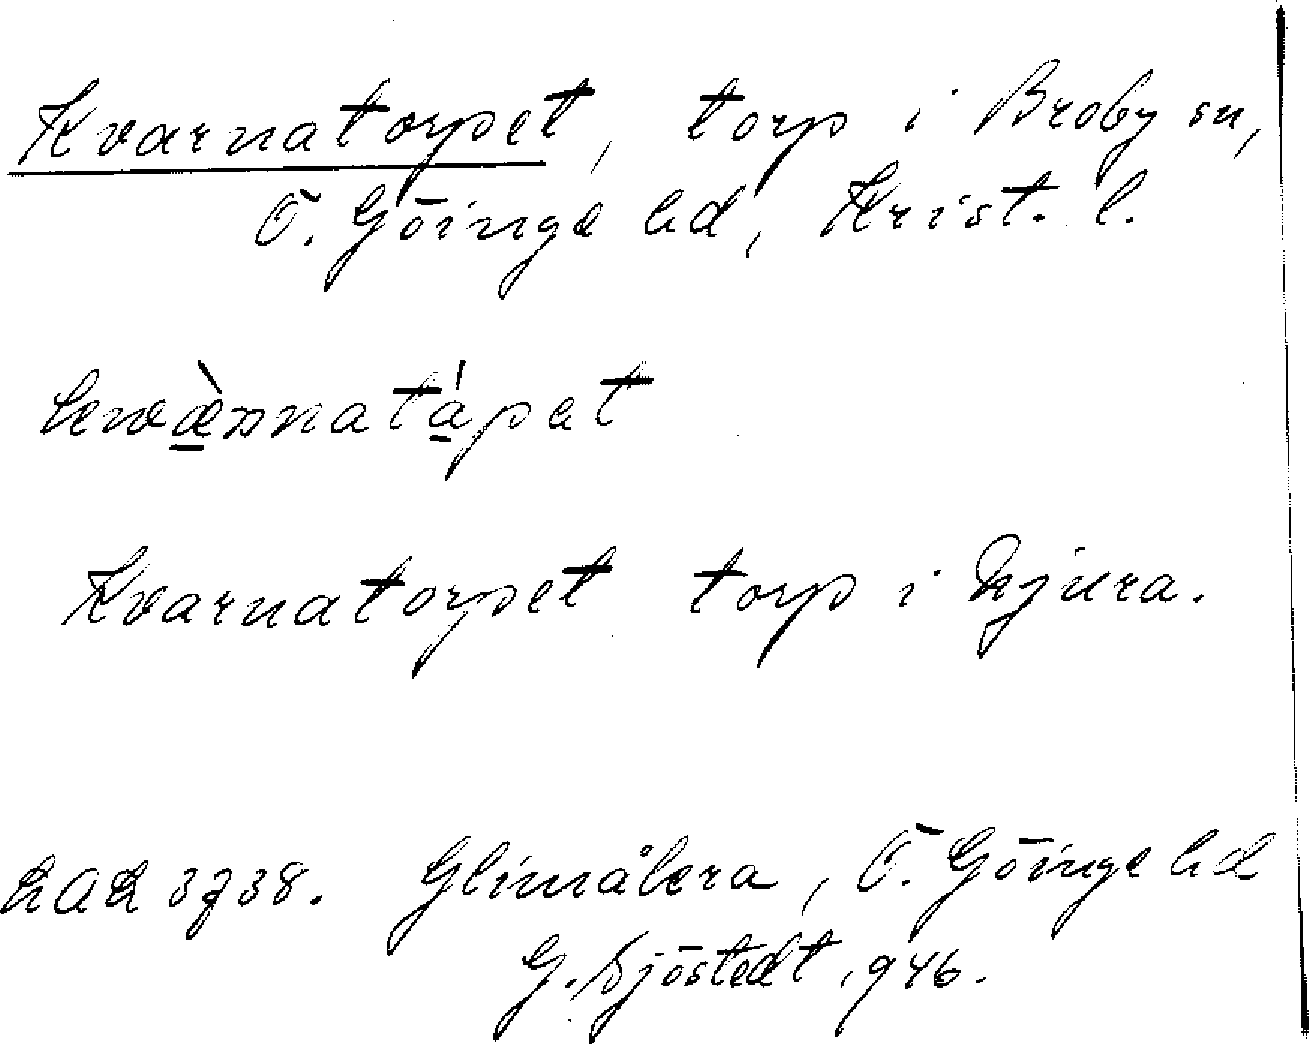 Kvarnatorpet, torp i Broby sn,
Ö. Göinge hd, Krist. l.
kwæ̀nnatápet
Kvarnatorpet torp i Njura.
LAL 3738. Glimåkra, Ö. Göinge hd
G. Sjöstedt, 946.